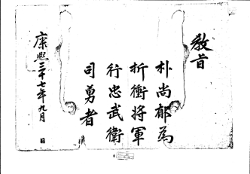 敎旨
朴尚郁為
折衝將軍
行忠武衛
司勇者
康熙三十七年九月 日